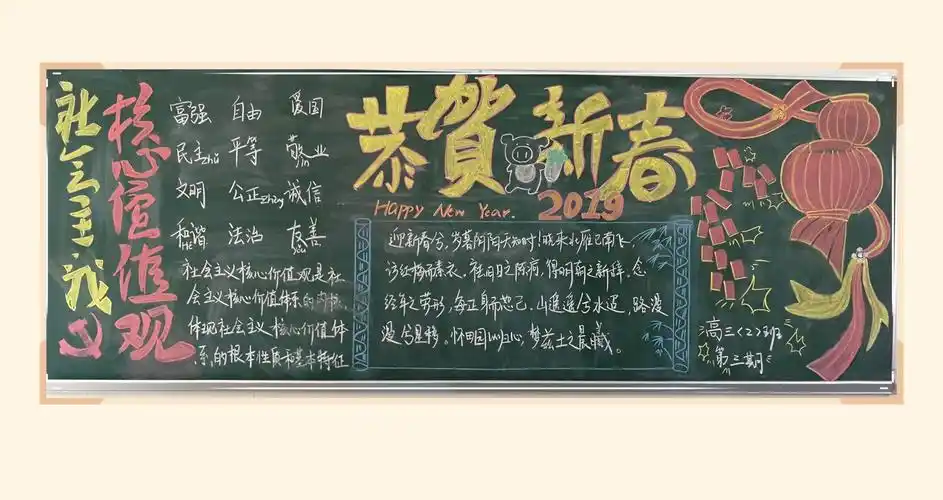 社会主义
核心价值观
富强 自由 爱国
民主zhǔ 平等 敬业
文明 公正zhèng 诚信
和谐 法治 友善
社会主义核心价值观是社
会主义核心价值体系的内核,
体现社会主义核心价值体
系的根本性质和基本特征
恭賀新春
Happy New Year. 2019
迎新春兮,岁暮阴阳天知时!晓来北雁已南飞,
诉红梅而素衣。往旧日之陈疴,得明朝之新祥,念
经年之劳形,每正身而恕己。山遥遥兮水迢,路漫
漫兮星稀。怀田园以归心,梦兹土之晨曦。
高三<22>班
第三期